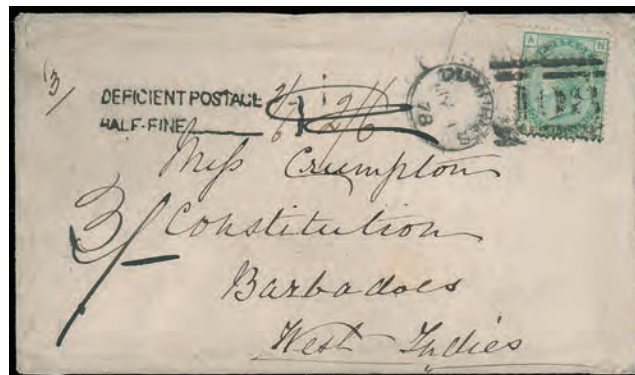 3/
DEFICIENT POSTAGE 2/ 2/6
HALF-FINE /6
DUMFRIES
78
A N
Miss Crumpton
3/-
Constitution
Barbadoes
West Indies